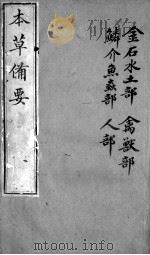 本草備要
金石水土部 禽獸部
鱗介魚蟲部 人部
www.dushu.com